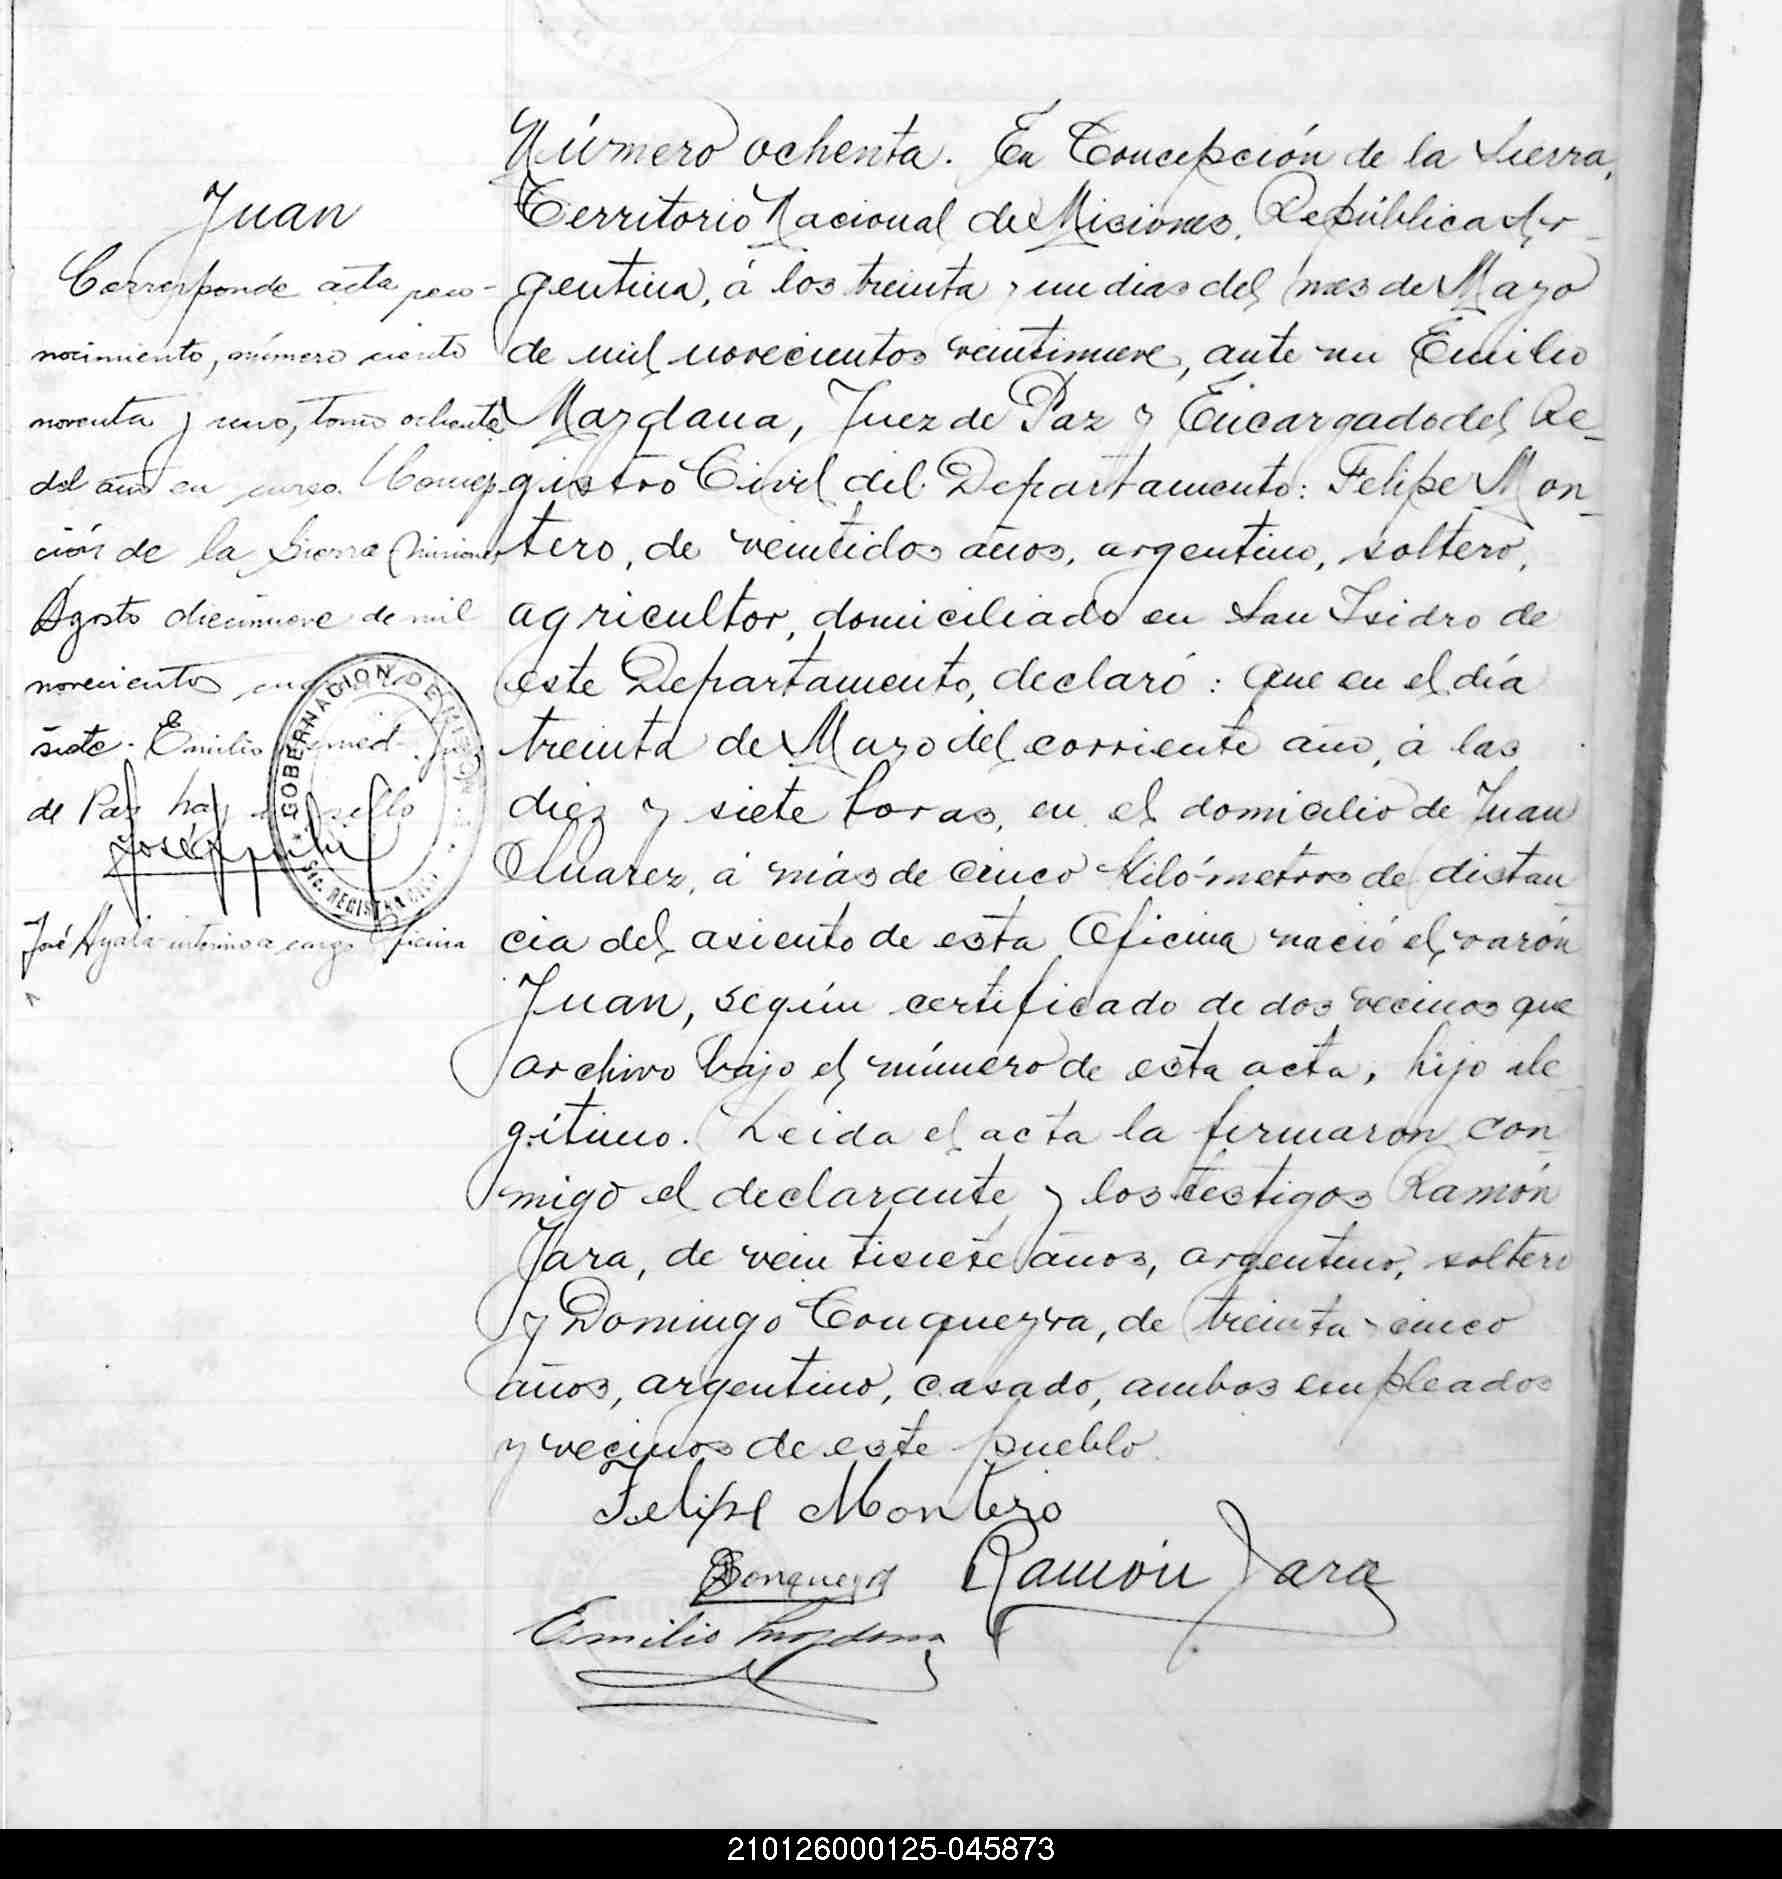 Juan
Corresponde acta reco-
nocimiento, número ciento
noventa y uno, tomo ochenta
del año en curso. Concep-
ción de la Sierra (Misiones
Agosto diecinueve de mil
novecientos
siete. Emilio
de Paz hay sello
José Ayala interino a cargo Oficina
GOBERNACION DE MISIONES
REGISTRO CIVIL
Número ochenta. En Concepción de la Sierra,
Territorio Nacional de Misiones, República Ar-
gentina, á los treinta y un dias del mes de Mayo
de mil novecientos veintinueve, ante mi Emilio
Mazdana, Juez de Paz y Encargado del Re-
gistro Civil del Departamento: Felipe Mon-
tero, de veintidos años, argentino, soltero,
agricultor, domiciliado en San Isidro de
este Departamento, declaró: que en el día
treinta de Marzo del corriente año, á las
diez y siete horas, en el domicilio de Juan
Suarez, á más de cinco kilómetros de distan
cia del asiento de esta Oficina nació el varón
Juan, según certificado de dos vecinos que
archivo bajo el número de esta acta, hijo ile
gítimo. Leida el acta la firmaron con-
migo el declarante y los testigos Ramón
Jara, de veintisiete años, argentino, soltero
y Domingo Conqueyra, de treinta y cinco
años, argentino, casado, ambos empleados
y vecinos de este pueblo.
Felipe Montero
Ramón Jara
Emilio Mazdana
210126000125-045873